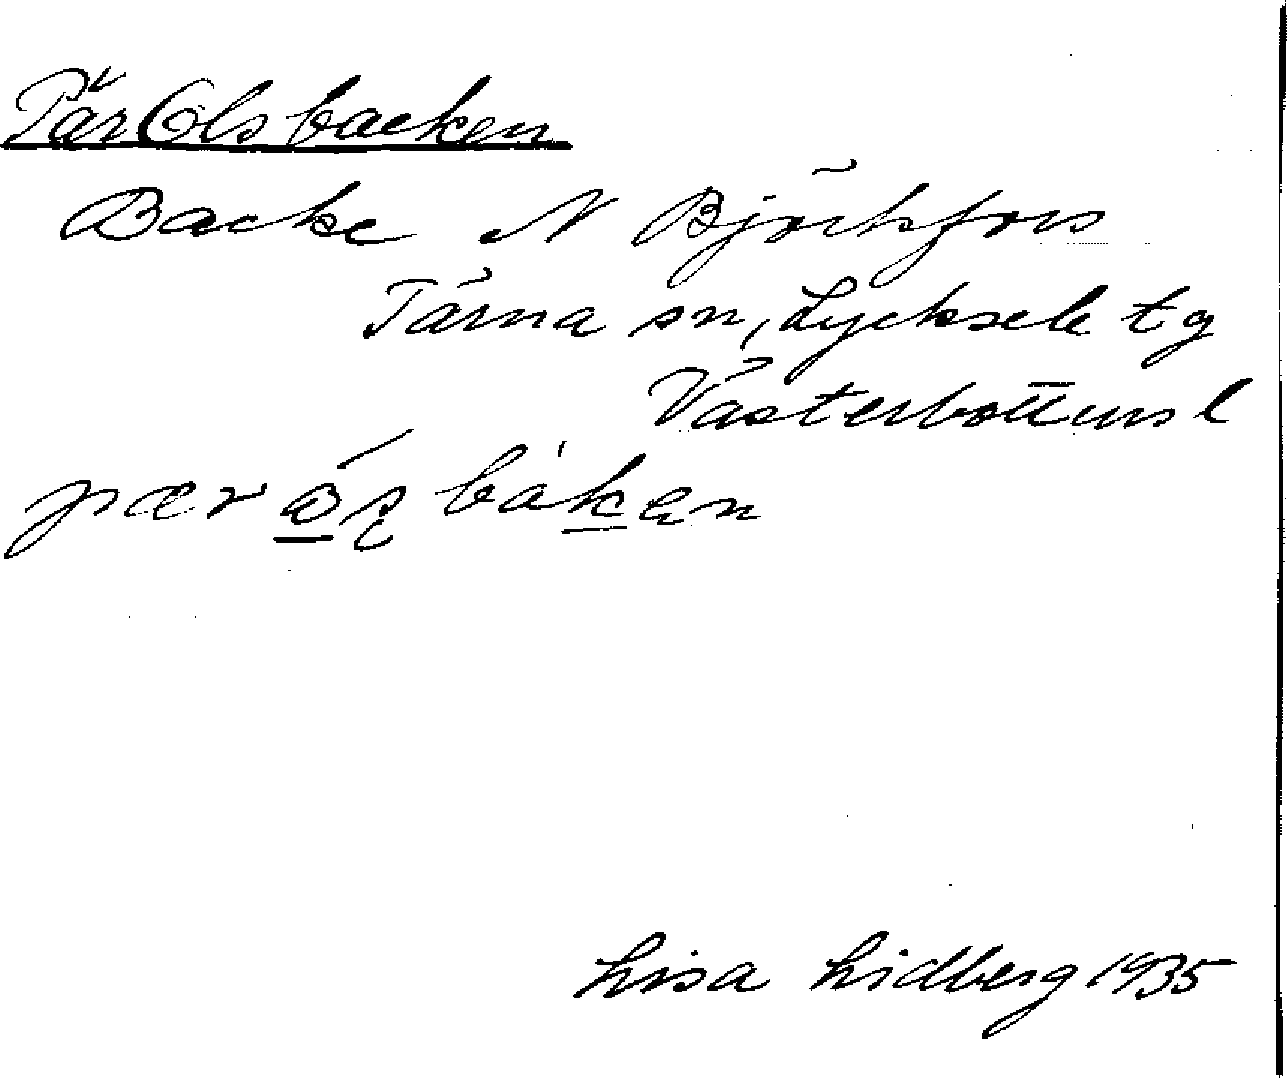 Pär Olsbacken
Backe N Björkfors
Tärna sn, Lycksele tg
Västerbottens l
pær ó̲ʂ bàk̲en
Lisa Lidberg 1935